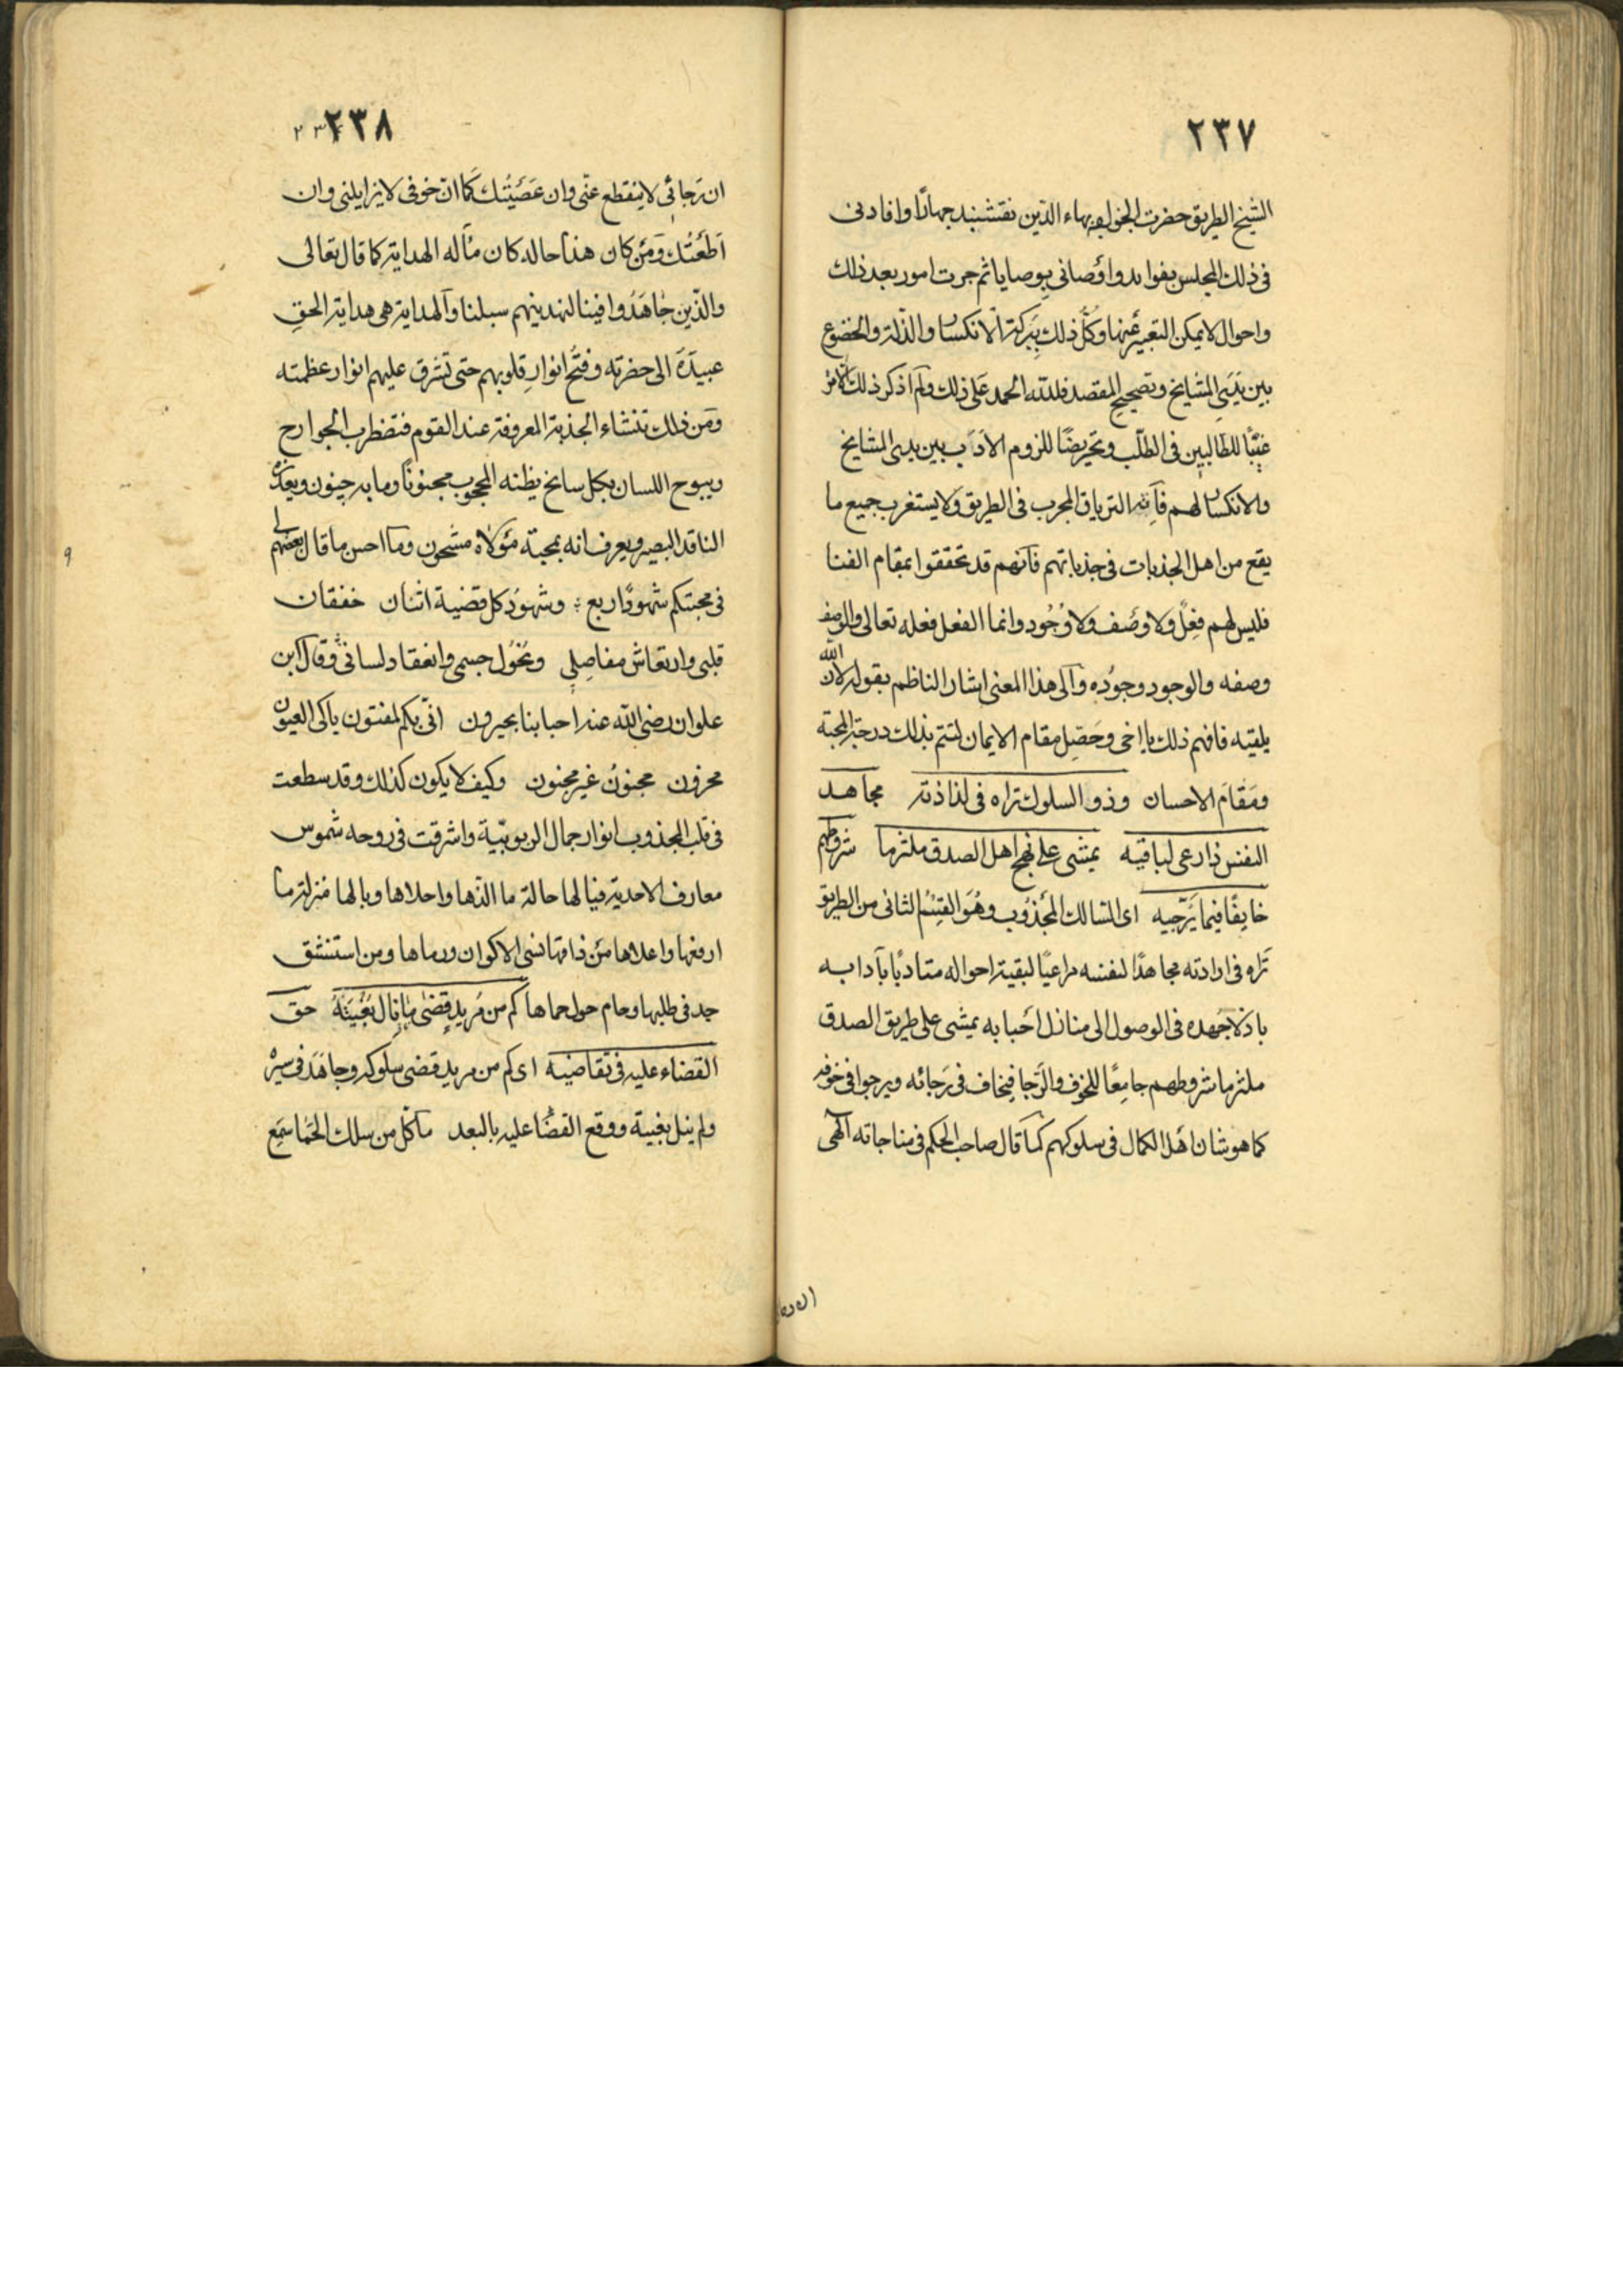 ٢٣٧
الشيخ الطريق حضرت الخواجه بهاء الدّين نقشبند جهارًا وافادنى
فى ذلك المجلس بفوايد واوصانى بوصايا ثم جرت امور بعد ذلك
واحوال لايمكن التعبير عنها وكلّ ذلك ببركة الانكسار والذّلة والخضوع
بين يدى المشايخ وتصحيح المقصد فلله الحمد على ذلك ولم اذكر ذلك الا
للطالبين فى الطلب وتحريضًا للزوم الادب بين يدى المشايخ
والانكسار لهم فانه الترياق المجرب فى الطريق ولا يستغرب جميع ما
يقع من اهل الجذبات فى جذباتهم فانهم قد تحققوا بمقام الفنا
فليس لهم فعل ولا وصف ولا وجود وانما الفعل فعله تعالى والوصف
وصفه والوجود وجوده والى هذا المعنى اشار الناظم بقوله لان الله
يلقيه فافهم ذلك يا اخى وحصّل مقام الايمان لتتم بذلك درجة المحبة
ومقام الاحسان وذو السلوك تراه فى لذاذته مجاهد
النفس ذا رعى لباقيه يمشى على نهج اهل الصدق ملتزما شروطهم
خايفًا فيما يرجّيه اى السالك المجذوب وهو القسم الثانى من الطريق
تراه فى ارادته مجاهدًا لنفسه مراعيًا لبقية احواله متادبًا بآدابه
باذلا جهده فى الوصول الى منازل احبابه يمشى على طريق الصدق
ملتزما شروطهم جامعًا للخوف والرجا فيخاف فى رجائه ويرجوا فى خوفه
كما هو شان اهل الكمال فى سلوكهم كما قال صاحب الحكم فى مناجاته الهى
٢٣٨
ان رجائى لاينقطع عنّى وان عصيتك كما انّ خوفى لايزايلنى وان
اطعتك ومن كان هذا حاله كان مآله الهداية كما قال تعالى
والذين جاهدوا فينا لنهدينهم سبلنا والهداية هى هداية الحق
عبيده الى حضرته وفتح انوار قلوبهم حتى تشرق عليهم انوار عظمته
ومن ذلك تنشاء الجذبة المعروفة عند القوم فتضطرب الجوارح
ويبوح اللسان بكل سانح يظنه المحجوب مجنونًا وما به جنون
الناقد البصير ويعرف انه بمحبة مولاه مشحون وما احسن ما قال بعضهم
لى فى محبتكم شهودًا اربع وشهود كل قضية اثنان خفقان
قلبى وارتعاش مفاصلى ونحول جسمى وانعقاد لسانى وقال ابن
علوان رضى الله عنه احبابنا بجيرون انى بكم لمفتون باكى العيون
محزون مجنون غير مجنون وكيف لا يكون كذلك وقد سطعت
فى قلب المجذوب انوار جمال الربوبيّة واشرقت فى روحه شموس
معارف الاحدية فيا لها حالة ما الذّها واحلاها ويا لها منزلة ما
ارفعها واعلاها من ذاقها نسى الاكوان ورماها ومن استنشق
جد فى طلبها وحام حول حماها كم من مريد قضى ما نال بغيته حق
القضاء عليه فى تقاضيه اى كم من مريد قضى سلوكه وجاهد فى سيره
ولم ينل بغيته ووقع القضا عليه بالبعد ما كل من سلك الحما سمع